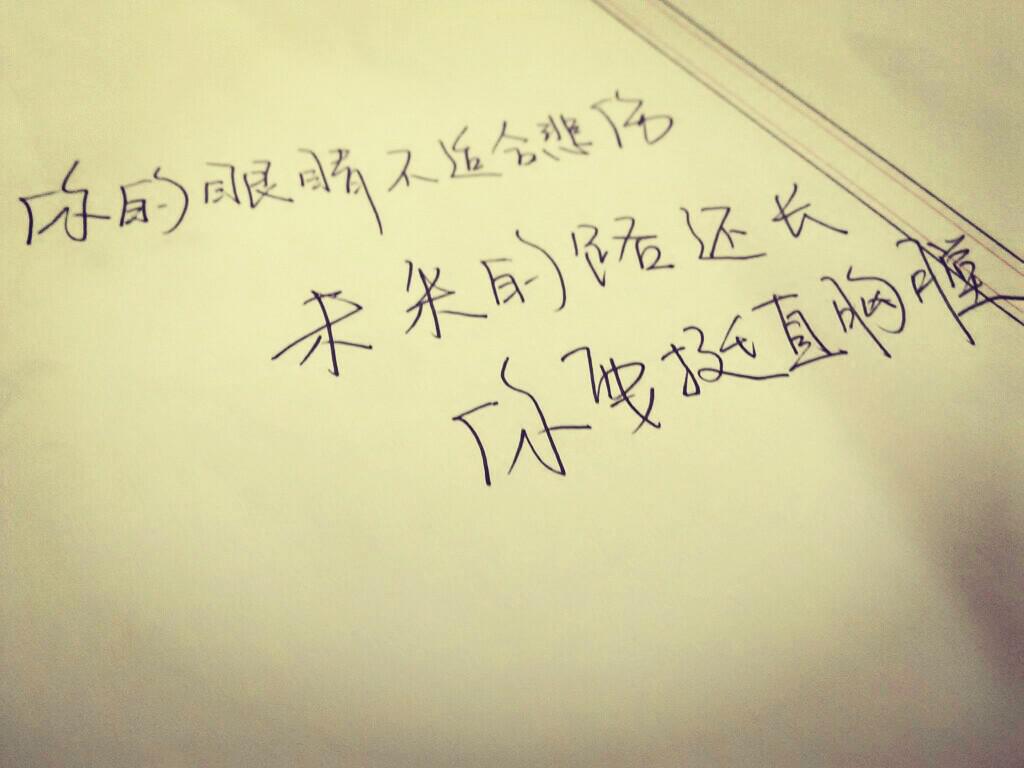 你的眼睛不适合悲伤
未来的路还长
你要挺直胸膛